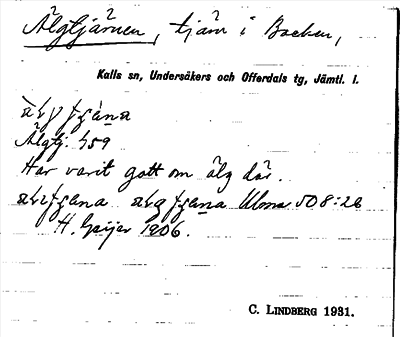 Älgtjärnen, tjärn i Backen,
Kalls sn, Undersåkers och Offerdals tg, Jämtl. l.
Älgtj. 459
Har varit gott om älg där.
Ulma 508:26
H. Geijer 1906.
C. LINDBERG 1931.